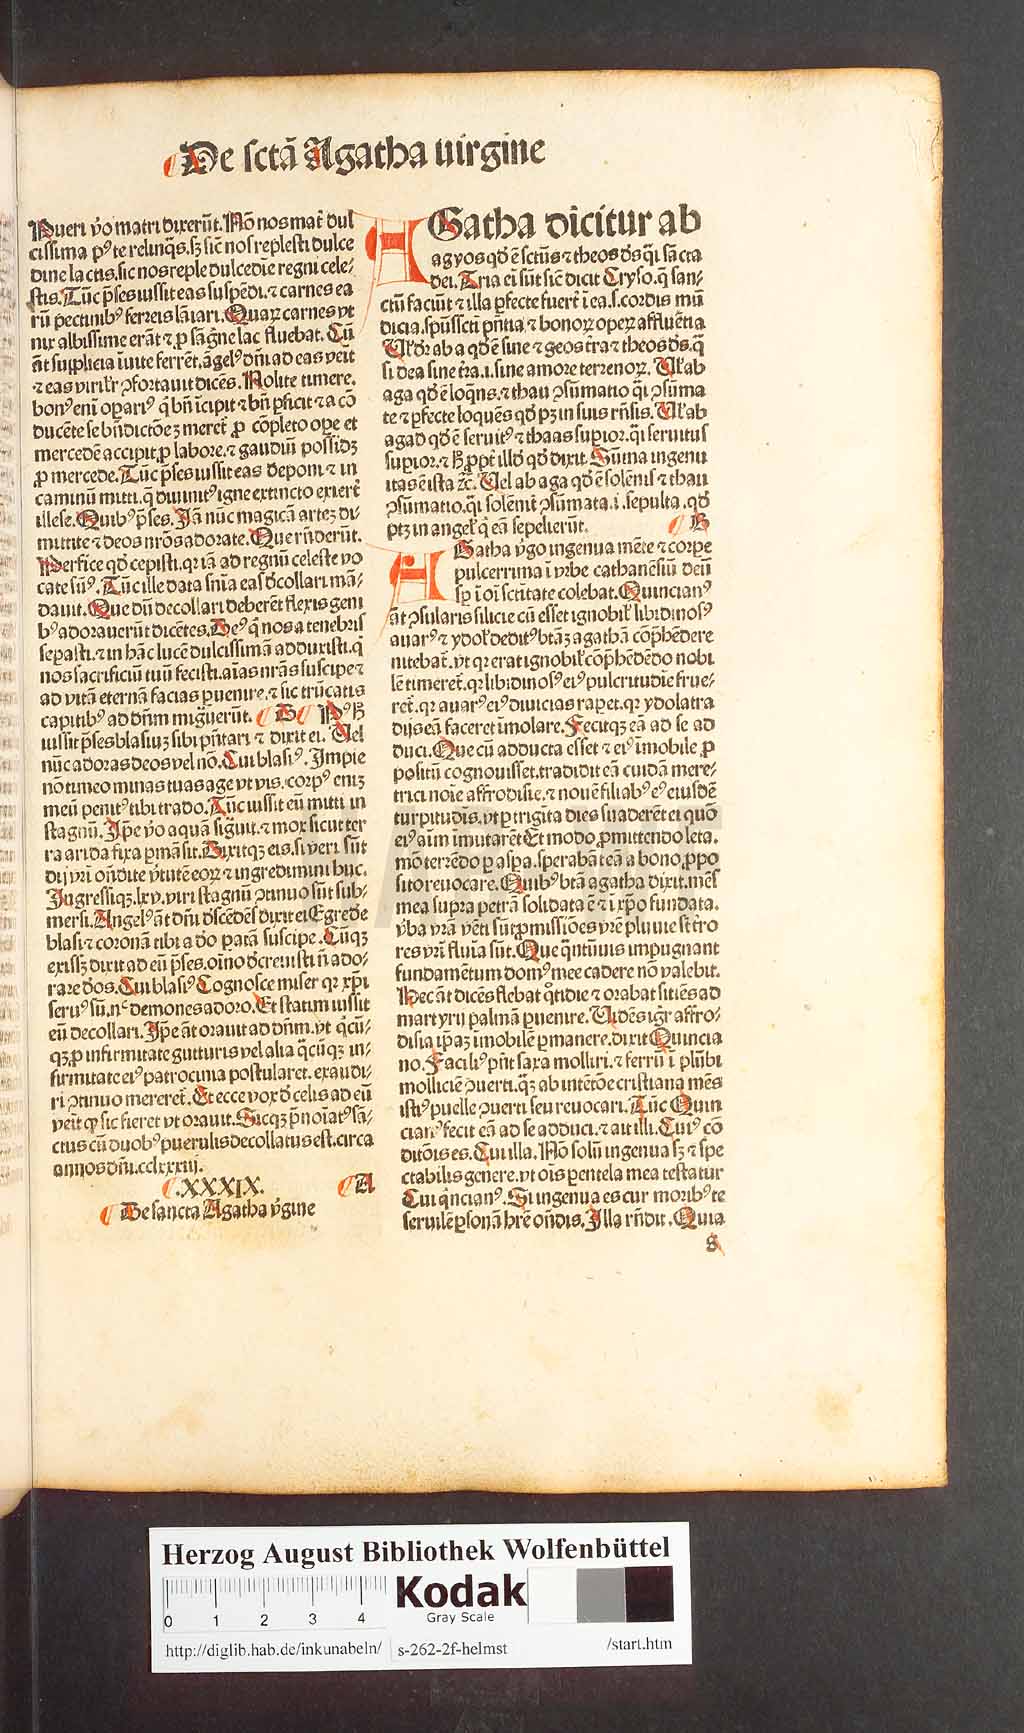 De sctā Agatha uirgine
Pueri v̄o matri dixerūt. Nō nos mat̄ dul
cissima pꝰ te relinq̄s. sꝫ sic̄ nos replesti dulce
dine lactis. sic nos reple dulcedīe regni cele⸗
stis. Tūc p̄ses iussit eas suspēdi. ⁊ carnes ea
rū pectinibꝰ ferreis lāiari. Quaꝝ carnes vt
nix albissime erāt ⁊ ꝓ sāgne lac fluebat. Cū
āt supplicia īuite ferrēt. āgelꝰ dn̄i ad eas veīt
⁊ eas viril̄r ꝯfortauit dicēs. Nolite timere.
bonꝰ eni oꝑariꝰ q̇ bn̄ īcipit ⁊ bn̄ ꝑficit ⁊ a cō
ducēte se bn̄dictōeꝫ meret̄ ꝓ cōpleto oꝑe et
mercedē accipit ꝓ labore. ⁊ gaudiū possidꝫ
ꝓ mercede. Tūc p̄ses iussit eas deponi ⁊ in
caminū mitti. q̄ diuinitꝰ igne extincto exiert̄
illese. Quibꝰ p̄ses. Jā nūc magicā arteꝫ di⸗
mittite ⁊ deos nr̄os adorate. Que rn̄derūt.
Perfice qd̓ cepisti. qꝛ iā ad regnū celeste vo
cate sumꝰ. Tūc ille data snīa eas d̓collari mā⸗
dauit. Que dū decollari deberēt flexis geni
bꝰ adorauerūt dicētes. Deꝰ q̇ nos a tenebris
sepasti. ⁊ in hāc lucē dulcissimā adduxisti. q̇
nos sacrificiū tuū fecisti. aīas nrās suscipe ⁊
ad vitā eternā facias ꝑuenire. ⁊ sic trūcatis
capitibꝰ ad dn̄m migrerūt. B Pꝰ ꝫ
iussit p̄ses blasiuꝫ sibi pn̄tari ⁊ dixit ei. Vel
nūc adoras deos vel nō. Cui blasiꝰ. Jmpie
nō timeo minas tuas age vt vis. corpꝰ eniꝫ
meū penitꝰ tibi trado. Tūc iussit eū mitti in
stagnū. Jp̄e v̄o aquā signuit. ⁊ mox sicut ter
ra arida fixa ꝑmāsit. Dixitqꝫ eis. si veri sūt
dij vrī on̄dite vtutē eoꝝ ⁊ ingredimini huc.
Jngressiqꝫ. lxv. viri stagnū ꝯtinuo sūt sub⸗
mersi. Angelꝰ āt dn̄i d̓scedēs dixit ei Egrede
blasi ⁊ coronā tibi a d̓o patā suscipe. Cūqꝫ
exissꝫ dixit ad eū p̄ses. oīno d̓creuisti n̄ ado⸗
rare d̓os. Cui blasiꝰ Cognosce miser qꝛ xp̄i
seruꝰ sū. nᶜ demones adoro. Et statim iussit
eū decollari. Jp̄e āt orauit ad dn̄m. vt q̇cū⸗
qꝫ ꝓ infirmitate gutturis vel alia q̇cūqꝫ in⸗
firmitate eiꝰ patrocinia postularet. exaudi⸗
ri ꝯtinuo mereret̄. Et ecce vox d̓ celis ad eū
veit ꝙ sic fieret vt orauit. Sicqꝫ p̄noīatꝰ sā⸗
ctus cū duobꝰ puerulis decollatus est. circa
annos dn̄i. cclxxxiij.
.XXXIX. A
De sancta Agatha v̓gine
AGatha dicitur ab
agyos qd̓ ē sctūs ⁊ theos ds̄ q̄i sācta
dei. Tria ei sūt sic̄ dicit Cryso. q̄ san⸗
ctū faciūt ⁊ illa ꝑfecte fuerūt ī ea. s. cordis mū
dicia. spūssctī pn̄tia ⁊ bonoꝝ opeꝝ affluētia
Vl̓ dr̄ ab a qd̓ ē sine ⁊ geos tr̄a ⁊ theos ds̄. q̄
si dea sine tr̄a. i. sine amore terrenoꝝ. Vl̓ ab
aga qd̓ ē loq̄ns. ⁊ thau ꝯsūmatio q̄i ꝯsūma
te ⁊ ꝑfecte loquēs qd̓ pꝫ in suis rn̄sis. Vl̓ ab
agad qd̓ ē seruitꝰ ⁊ thaas suꝑior. q̄i seruitus
suꝑior. ⁊ ꝫ ꝓpt̄ illd̓ qd̓ dixit. Sūma ingenu
itas ē ista ⁊c̄. Vel ab aga qd̓ ē solēnis ⁊ thau
ꝯsūmatio. q̄i solēnit̄ ꝯsūmata. i. sepulta. qd̓
ptꝫ in angel̓ q̇ eā sepelierūt. B
AGatha v̓go ingenua mēte ⁊ corpe
pulcerrima ī vrbe cathanēsiū deū
sꝑ ī oī sctītate colebat. Quincianꝰ
āt ꝯsularis silicie cū esset ignobil̓ libidinosꝰ
auarꝰ ⁊ ydol̓ deditꝰ btāꝫ agathā cōp̄hēdere
nitebat̄. vt qꝛ erat ignobil̓ cōp̄hēdēdo nobi
lē timeret̄. qꝛ libidinosꝰ eiꝰ pulcritudīe frue⸗
ret̄. qꝛ auarꝰ eiꝰ diuicias raꝑet. qꝛ ydolatra
dijs eā faceret īmolare. Fecitqꝫ eā ad se ad
duci. Que cū adducta esset ⁊ eiꝰ īmobile ꝓ
positū cognouisset. tradidit eā cuidā mere⸗
trici noīe affrodisie. ⁊ nouē filiabꝰ eꝰ eiusdē
turpitudīs. vt ꝑ trigīta dies suaderēt ei quō
eiꝰ aīm īmutarēt Et modo ꝓmittendo leta.
mō terrēdo ꝑ aspa. sperabāt eā a bono ꝓpo
sito reuocare. Quibꝰ btā agatha dixit. mēs
mea supra petrā solidata ē ⁊ ī xp̄o fundata.
v̓ba vrā vēti sūt ꝓmissiōes vrē pluuie st̄ t̄ro
res vrī fluīa sūt. Que q̄ntūuis impugnant
fundamētum domꝰ mee cadere nō valebit.
Hec āt dicēs flebat q̊tidie ⁊ orabat sitiēs ad
martyrij palmā ꝑuenire. Vidēs igr̄ affro⸗
disia ip̄aꝫ īmobilē ꝑmanere. dixit Quincia
no. Faciliꝰ pn̄t saxa molliri. ⁊ ferrū ī plūbi
molliciē ꝯuerti. q̄ꝫ ab intētōe cristiana mēs
istiꝰ puelle ꝯuerti seu reuocari. Tūc Quin
cianꝰ fecit eā ad se adduci. ⁊ ait illi. Cuiꝰ cō
ditōis es. Cui illa. Nō solū ingenua sꝫ ⁊ spe
ctabilis genere. vt oīs ꝑentela mea testatur
Cui q̇ncianꝰ. Si ingenua es cur moribꝰ te
seruilē ꝑsonā hr̄e on̄dis. Jlla rn̄dit. Quia
s
Herzog August Bibliothek Wolfenbüttel
0 1 2 3 4
Kodak
Gray Scale
http://diglib.hab.de/inkunabeln/ s-262-2f-helmst /start.htm